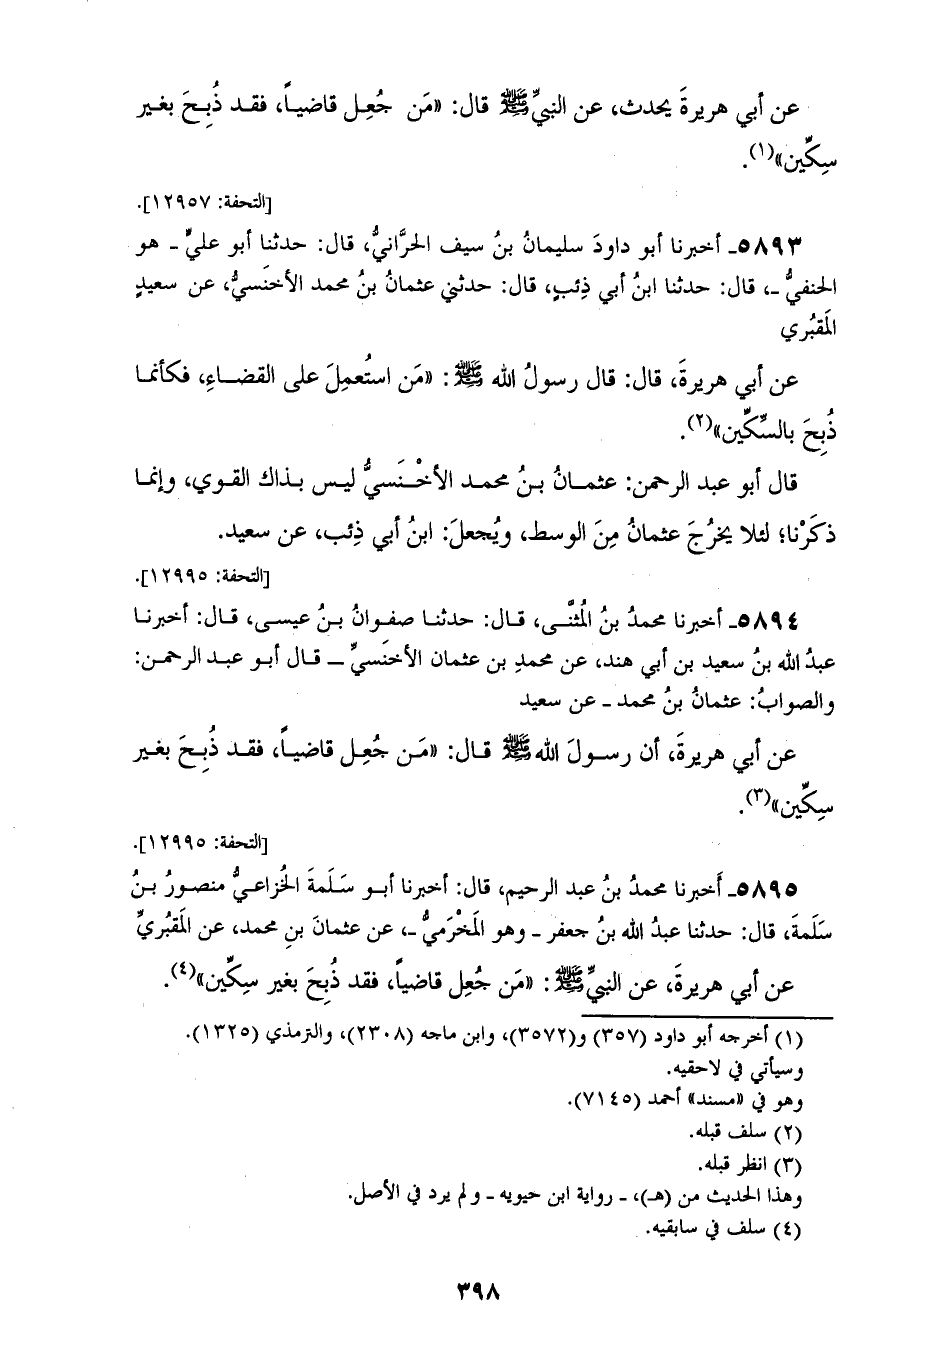 عن أبي هريرةَ يحدث، عن النبيِّ ﷺ قال: «مَن جُعِل قاضياً، فقد ذُبِحَ بغير
سِكِّين»(١).
[التحفة: ١٢٩٥٧].
٥٨٩٣ـ أخبرنا أبو داودَ سليمانُ بنُ سيف الحرَّانيُّ، قال: حدثنا أبو عليٍّ ـ هو
الحنفيُّ ـ، قال: حدثنا ابنُ أبي ذِئبٍ، قال: حدثني عثمانُ بنُ محمد الأخنَسيُّ، عن سعيدٍ
المَقبُري
عن أبي هريرةَ، قال: قال رسولُ الله ﷺ: «مَن استُعمِلَ على القضاءِ، فكأنما
ذُبِحَ بالسِّكِّين»(٢).
قال أبو عبد الرحمن: عثمانُ بنُ محمد الأخْنَسيُّ ليس بذاك القوي، وإنما
ذكَرْنا؛ لئلا يخرُجَ عثمانُ مِنَ الوسط، ويُجعلَ: ابنُ أبي ذِئب، عن سعيد.
[التحفة: ١٢٩٩٥].
٥٨٩٤ـ أخبرنا محمدُ بنُ المُثنَّى، قال: حدثنا صفوانُ بنُ عيسى، قال: أخبرنا
عبدُ الله بنُ سعيد بن أبي هند، عن محمدِ بن عثمان الأخنَسيِّ ـ قال أبو عبد الرحمن:
والصوابُ: عثمانُ بنُ محمد ـ عن سعيد
عن أبي هريرةَ، أن رسولَ الله ﷺ قال: «مَن جُعِل قاضياً، فقد ذُبِحَ بغير
سِكِّين»(٣).
[التحفة: ١٢٩٩٥].
٥٨٩٥ـ أَخبرنا محمدُ بنُ عبد الرحيم، قال: أخبرنا أبو سَلَمةَ الخُزاعيُّ منصورُ بنُ
سَلَمةَ، قال: حدثنا عبدُ الله بنُ جعفر ـ وهو المَخْرَميُّ ـ، عن عثمانَ بنِ محمد، عن المَقبُريِّ
عن أبي هريرةَ، عن النبيِّ ﷺ: «مَن جُعِل قاضياً، فقد ذُبِحَ بغير سِكِّين»(٤).
(١) أخرجه أبو داود (٣٥٧) و(٣٥٧٢)، وابن ماجه (٢٣٠٨)، والترمذي (١٣٢٥).
وسيأتي في لاحقيه.
وهو في «مسند» أحمد (٧١٤٥).
(٢) سلف قبله.
(٣) انظر قبله.
وهذا الحديث من (هـ)، ـ رواية ابن حيويه ـ ولم يرد في الأصل.
(٤) سلف في سابقيه.
٣٩٨